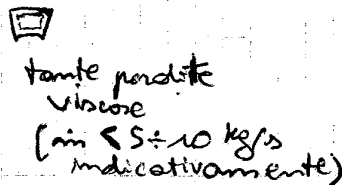 tante perdite
viscose
(ṁ < 5÷10 kg/s
indicativamente)